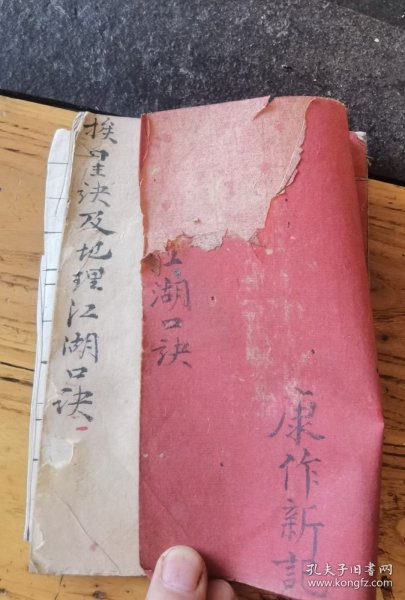 挨星诀及地理江湖口诀
江湖口訣
康作新記
孔夫子旧书网
www.kongfz.com